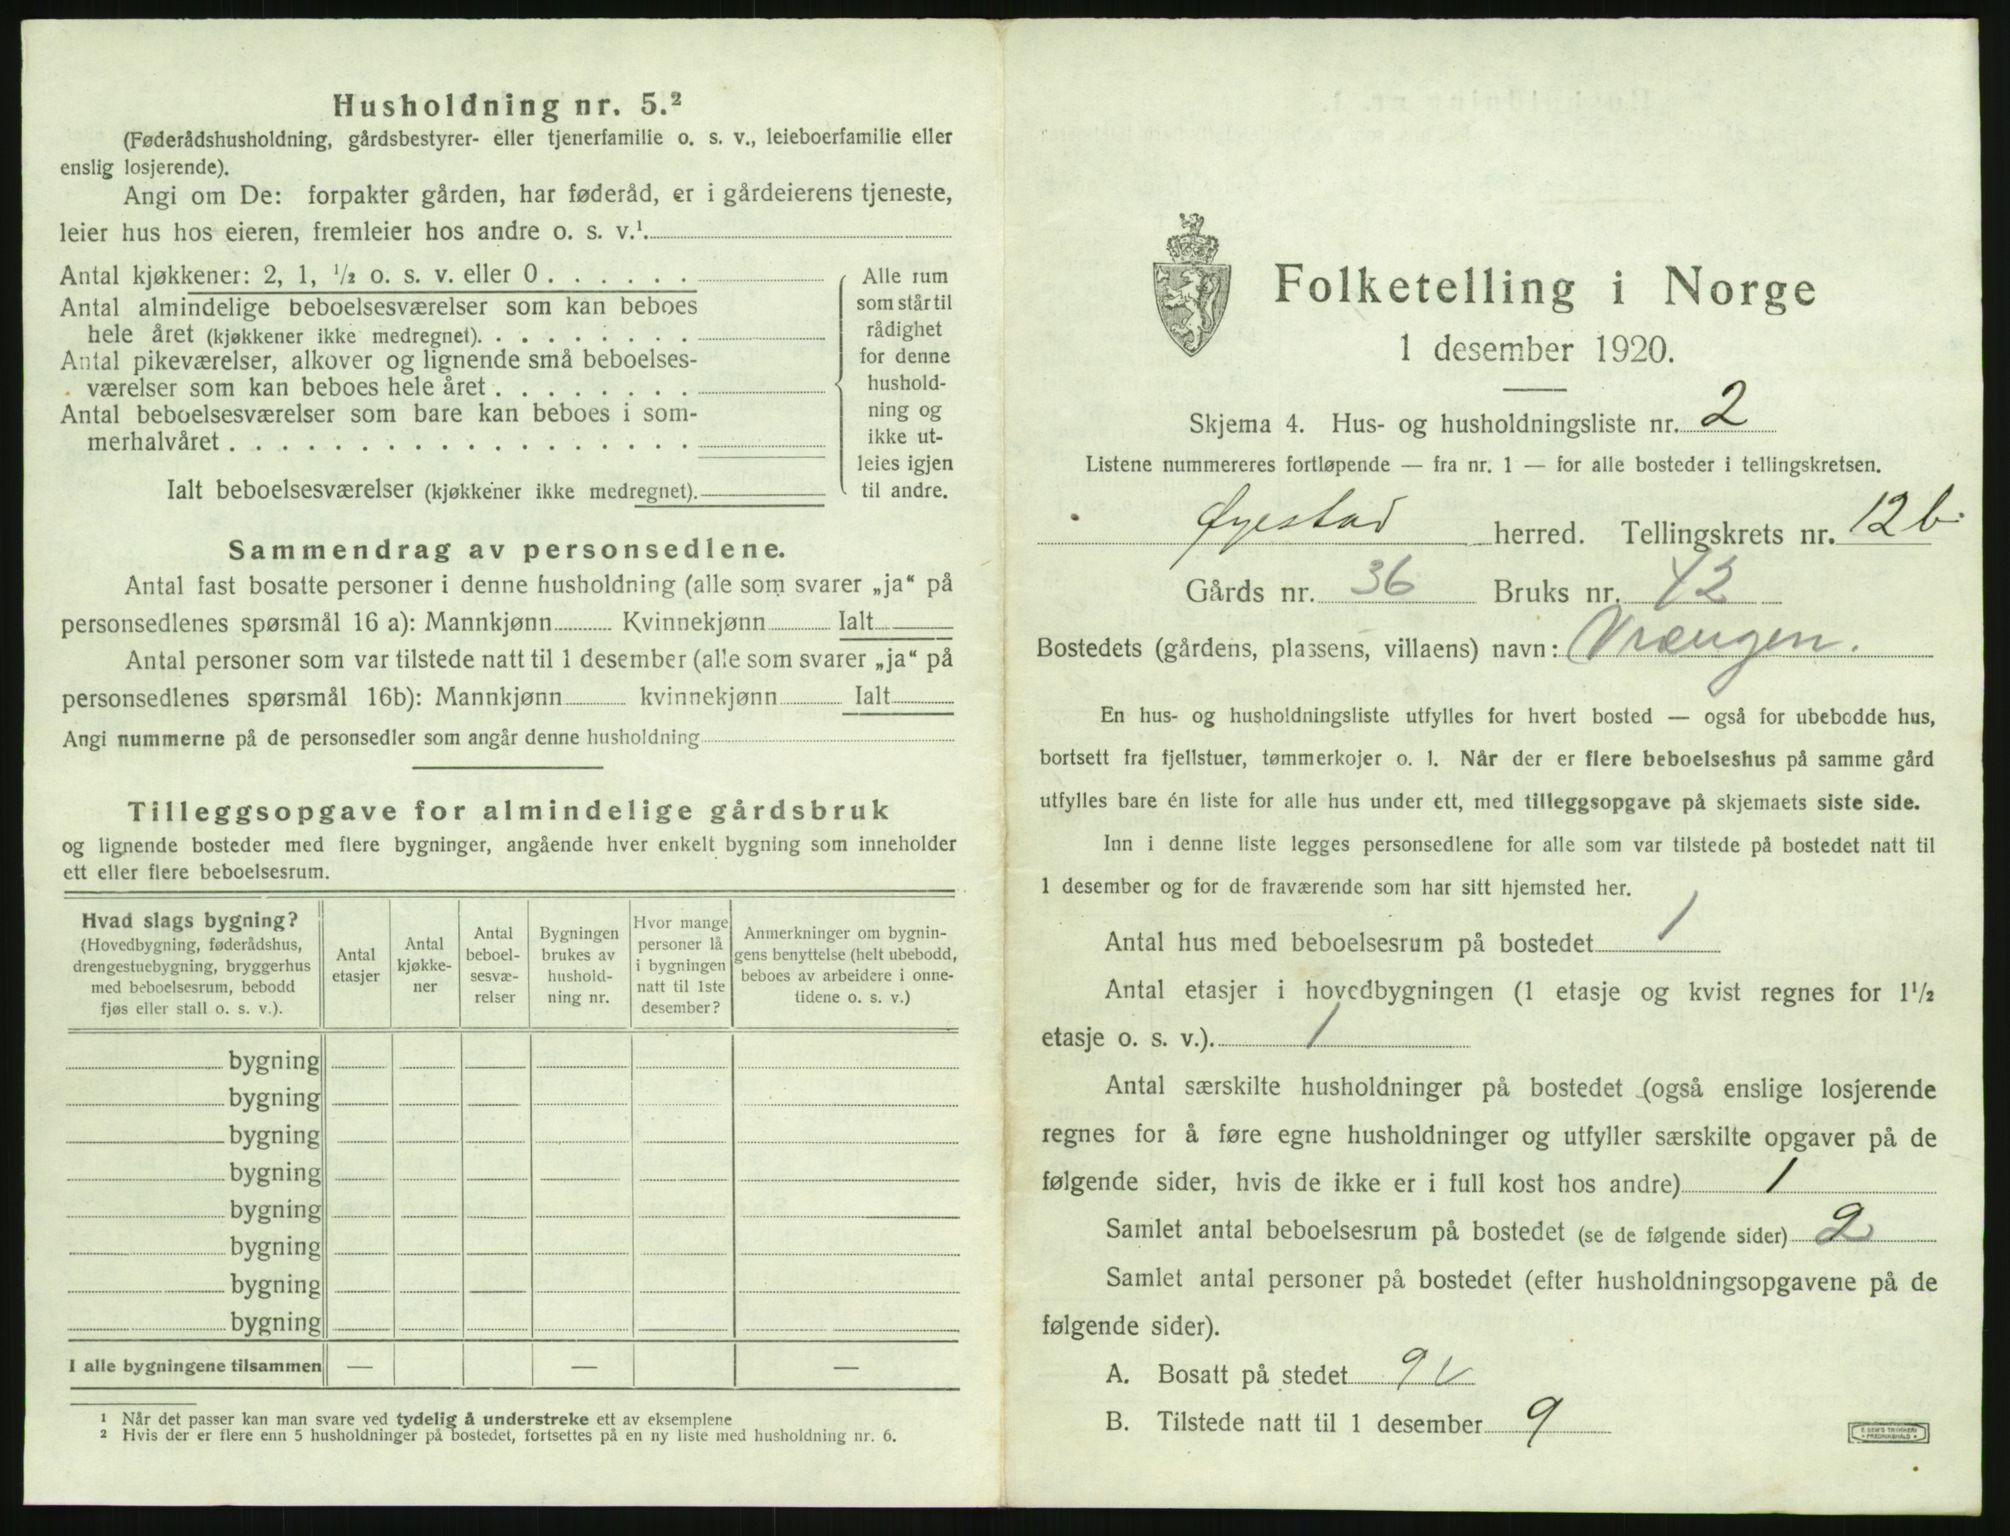 Husholdning nr. 5.²
(Føderådshusholdning, gårdsbestyrer- eller tjenerfamilie o. s. v., leieboerfamilie eller
enslig losjerende).
Angi om De: forpakter gården, har føderåd, er i gårdeierens tjeneste,
leier hus hos eieren, fremleier hos andre o. s. v.¹
Antal kjøkkener: 2, 1, ¹/₂ o. s. v. eller 0 . . . . . .
Antal almindelige beboelsesværelser som kan beboes
hele året (kjøkkener ikke medregnet). . . . . . . . .
Antal pikeværelser, alkover og lignende små beboelses-
værelser som kan beboes hele året . . . . . . . .
Antal beboelsesværelser som bare kan beboes i som-
merhalvåret . . . . . . . . . . . . . . . . . .
Ialt beboelsesværelser (kjøkkener ikke medregnet).
Alle rum
som står til
rådighet
for denne
hushold-
ning og
ikke ut-
leies igjen
til andre.
Sammendrag av personsedlene.
Antal fast bosatte personer i denne husholdning (alle som svarer „ja“ på
personsedlenes spørsmål 16 a): Mannkjønn Kvinnekjønn Ialt
Antal personer som var tilstede natt til 1 desember (alle som svarer „ja“ på
personsedlenes spørsmål 16b): Mannkjønn kvinnekjønn Ialt
Angi nummerne på de personsedler som angår denne husholdning
Tilleggsopgave for almindelige gårdsbruk
og lignende bosteder med flere bygninger, angående hver enkelt bygning som inneholder
ett eller flere beboelsesrum.
Hvad slags bygning?
(Hovedbygning, føderådshus,
drengestuebygning, bryggerhus
med beboelsesrum, bebodd
fjøs eller stall o. s. v.).
Antal
etasjer
Antal
kjøkke-
ner
Antal
beboel-
sesvæ-
relser
Bygningen
brukes av
hushold-
ning nr.
Hvor mange
personer lå
i bygningen
natt til 1ste
desember?
Anmerkninger om bygnin-
gens benyttelse (helt ubebodd,
beboes av arbeidere i onne-
tidene o. s. v.)
bygning
bygning
bygning
bygning
bygning
bygning
bygning
bygning
I alle bygningene tilsammen — — —
¹ Når det passer kan man svare ved tydelig å understreke ett av eksemplene
² Hvis der er flere enn 5 husholdninger på bostedet, fortsettes på en ny liste med husholdning nr. 6.
Folketelling i Norge
1 desember 1920.
Skjema 4. Hus- og husholdningsliste nr. 2
Listene nummereres fortløpende — fra nr. 1 — for alle bosteder i tellingskretsen.
Øyestad herred. Tellingskrets nr. 12b.
Gårds nr. 36 Bruks nr. 42
Bostedets (gårdens, plassens, villaens) navn: Vrængen.
En hus- og husholdningsliste utfylles for hvert bosted — også for ubebodde hus,
bortsett fra fjellstuer, tømmerkojer o. l. Når der er flere beboelseshus på samme gård
utfylles bare én liste for alle hus under ett, med tilleggsopgave på skjemaets siste side.
Inn i denne liste legges personsedlene for alle som var tilstede på bostedet natt til
1 desember og for de fraværende som har sitt hjemsted her.
Antal hus med beboelsesrum på bostedet 1
Antal etasjer i hovedbygningen (1 etasje og kvist regnes for 1¹/₂
etasje o. s. v.). 1
Antal særskilte husholdninger på bostedet (også enslige losjerende
regnes for å føre egne husholdninger og utfyller særskilte opgaver på de
følgende sider, hvis de ikke er i full kost hos andre) 1
Samlet antal beboelsesrum på bostedet (se de følgende sider) 2
Samlet antal personer på bostedet (efter husholdningsopgavene på de
følgende sider).
A. Bosatt på stedet 9 V
B. Tilstede natt til 1 desember 9